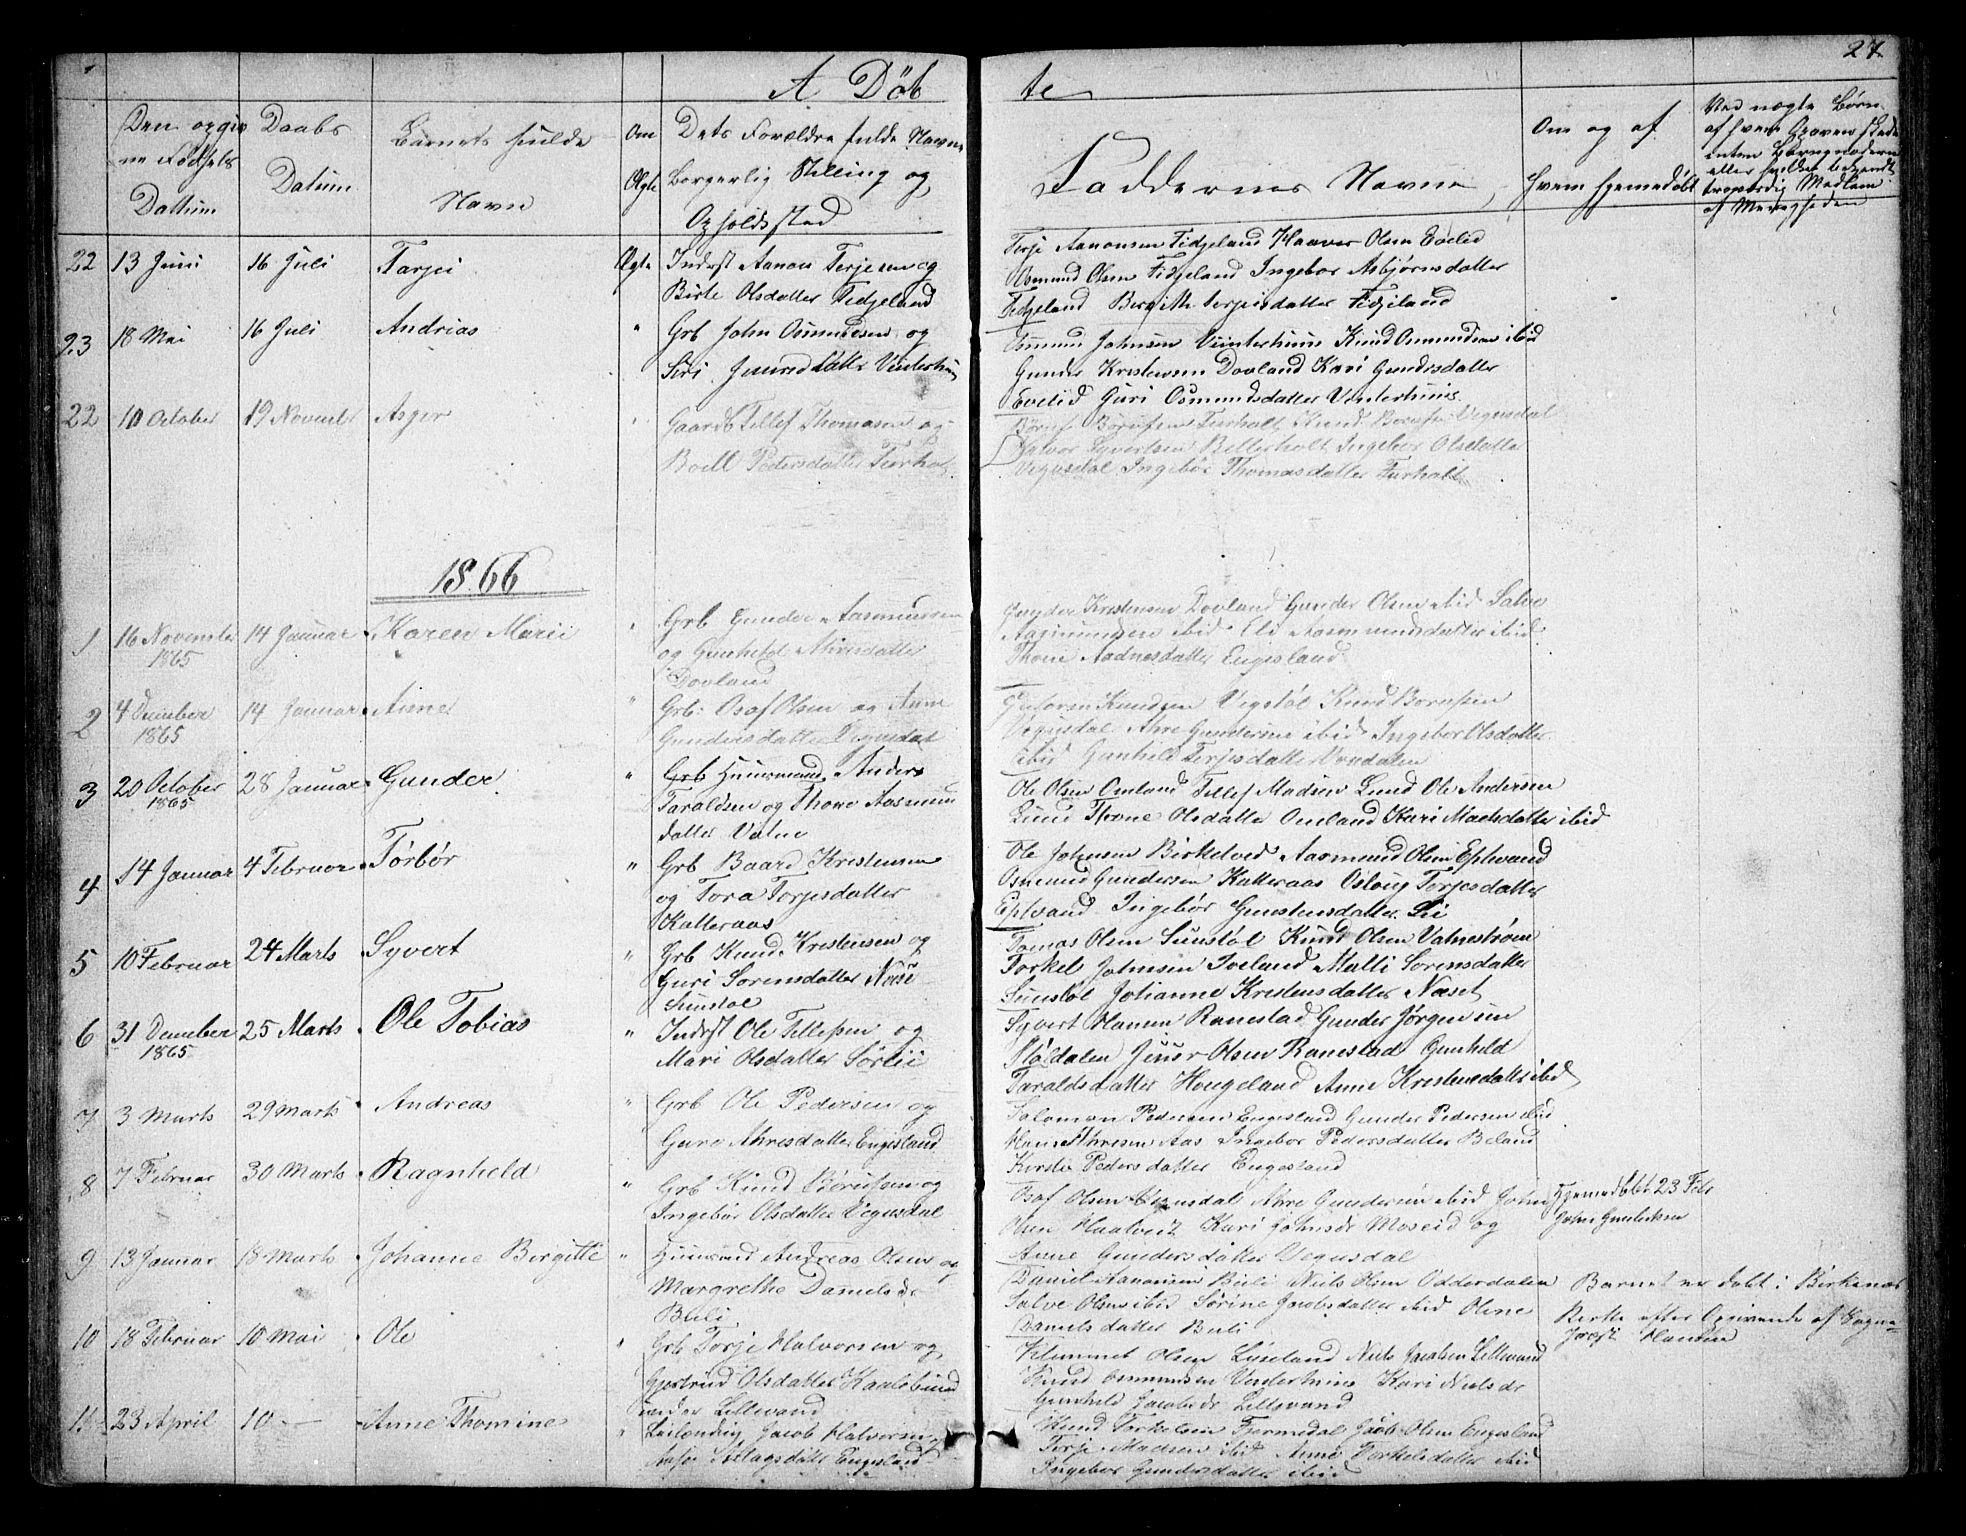 27.
A Döbte
Den opgivne Fødsels Dattum
Daabs Datum
Barnets fulde Navn
Om Ægte
Dets Forældre fulde Navne Borgerlig Stilling og Opholdssted
Faddernes Navne
Om og af hvem hjemedøbt
22 13 Juni 16 Juli Tarjei Ægte Inderst Aanon Terjesen og
Birte Olsdatter Fidjeland
Terje Aanonsen Fidjeland Haaver Olsen Evelid
Osmund Olsen Fidjeland Ingebor Asbjørnsdatter
Fidjeland Bergith Terjeisdatter Fidjeland
23 18 Mai 16 Juli Andrias " Grb John Osmundsen og
Siri Gunnersdatter Vinterhuus
Osmund Johnsen Vinterhuus Knud Osmundsen ibid
Gunder Kristensen Dovland Kari Gundersdatter
Evelid Guri Osmundsdatter Vinterhuus
22 10 October 19 November Asger " Gaardb Tellef Thomasen og
Boell Pedersdatter Furholt
Furholt Knud Vegusdal
Halvor Syvertsen Ingebor Olsdatter
Vegusdal Ingebør Thomasdatter Furholt
1866
1 16 November 1865 14 Januar Karen Marie " Grb Gunder Aasmundsen
og Gunheld Ahresdatter
Dovland
Gunder Kristensen Dovland Gunder Olsen ibid Salve
Aasmundsen ibid Eli Aasmundsdatter ibid
Thone Aadnesdatter Engesland
2 4 December 1865 14 Januar Anne " Grb: Osaf Olsen og Anne
Gundersdatter Vegusdal
Knudsen Vegstøl Knud Børufsen
Vegusdal Ahre Gundersen ibid Ingebor Olsdatter
ibid Gunhild Terjesdatter
3 20 October 1865 28 Januar Gunder " Grb Huusmand Anders
Taraldsen og Thone Aasmunds
datter Vatne
Ole Olsen Omland Tellef Madsen Lund Ole Andersen
Lund Thone Olsdatter Omland Kari Madsdatter ibid
4 14 Januar 4 Februar Tørbør " Grb Baard Kristensen
og Tora Torjesdatter
Katteraas
Ole Johnsen Birketved Aasmund Olsen Eptvand
Osmund Gundersen Katteraas Osloug Torjesdatter
Eptvand Ingebør Gunstensdatter Lie
5 10 Februar 24 Marts Syvert " Grb Knud Kristensen og
Guri Sorensdatter Næse
Sunstøl
Tomas Olsen Sunstøl Knud Olsen Vatnestrøm
Torkel Johnsen Iveland Malli Sorensdatter
Sunstøl Johanne Kristensdatter Næset
6 31 December 1865 25 Marts Ole Tobias " Indest Ole Tellefsen og
Mari Olsdatter Sørlie
Syvert Hansen Ranestad Gunder Jørgensen
Olsen Ranestad Gunheld
Taraldsdatter Hougeland Anne Kristensdatter ibid
7 3 Marts 29 Marts Andreas " Grb Ole Pedersen og
Guro Ahresdatter Engesland
Salomon Pedersen Engesland Gunder Pedersen ibid
Hans Ahresen Aas Ingebor Pedersdatter Beland
Kirstie Pedersdatter Engesland
8 7 Februar 30 Marts Ragnheld " Grb Knud Børufsen og
Ingebør Olsdatter Vegusdal
Osaf Olsen Vegusdal Ahre Gundersen ibid John
Olsen Haatveit Kari Johnsdr Moseid og
Anne Gundersdatter Vegusdal
Hjemedøbt 23 Febr
John Gundersen
9 13 Januar 18 Marts Johanne Birgitte " Huusmand Andreas Olsen og
Margrethe Danielsdr
Bieli
Daniel Aanonsen Bieli Niels Olsen Odderdalen
Salve Olsen ibid Sørine Jacobsdatter ibid Oline
Danielsdatter Bieli
Barnet er døbt i Birkenæs
Kerke efter Opgivende af Sogne-
præst Hansen
10 18 Februar 10 Mai Ole " Grb Torje Halvorsen og
Gjertrud Olsdatter Kaalebund
under Lillevand
Klemmet Olsen Lyseland Niels Jacobsen Lillevand
Knud Osmundsen Vinterhuus Kari Nielsdr
Gunheld Jacobsdr Lillevand
11 23 April 10 — Anne Thomine " Leilænding Jacob Halvorsen
Aslagsdatter Engesland
Knud Torkelsen Fjermedal Jacob Olsen Engesland
Terje Madsen ibid Anne Torkelsdatter ibid
Ingebor Gundersdatter ibid